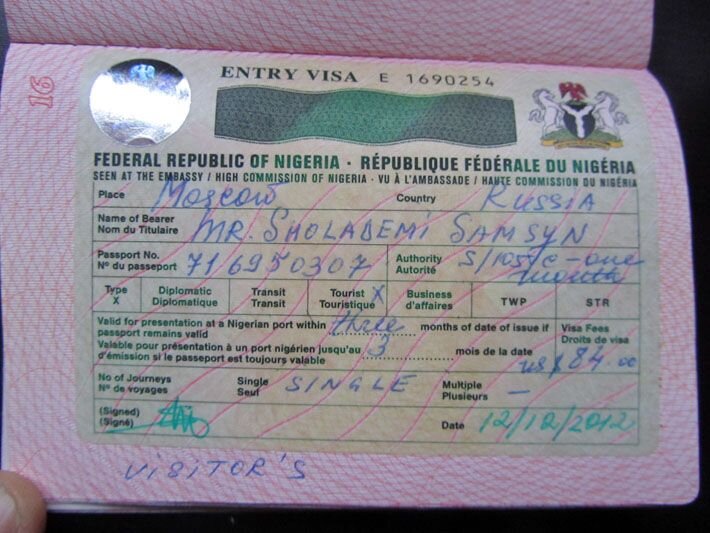 16
ENTRY VISA E 1690254
FEDERAL REPUBLIC OF NIGERIA · RÉPUBLIQUE FÉDÉRALE DU NIGÉRIA
SEEN AT THE EMBASSY / HIGH COMMISSION OF NIGERIA · VU À L'AMBASSADE / HAUTE COMMISSION DU NIGÉRIA
Place Moscow Country RUSSIA
Name of Bearer
Nom du Titulaire MR. SHOLADEMI SAMSYN
Passport No. Authority
Nº du passeport 716950307 Autorité S/105/C-one
month
Type Diplomatic Transit Tourist X Business TWP STR
X Diplomatique Transit Touristique d'affaires
Valid for presentation at a Nigerian port within three months of date of issue if Visa Fees
passport remains valid Droits de visa
Valable pour présentation à un port nigérien jusqu'au 3 mois de la date US $ 84.00
d'émission si le passeport est toujours valable
No of Journeys Single SINGLE Multiple –
Nº de voyages Seul Plusieurs
(Signed)
(Signé) Date 12/10/2012
VISITOR'S